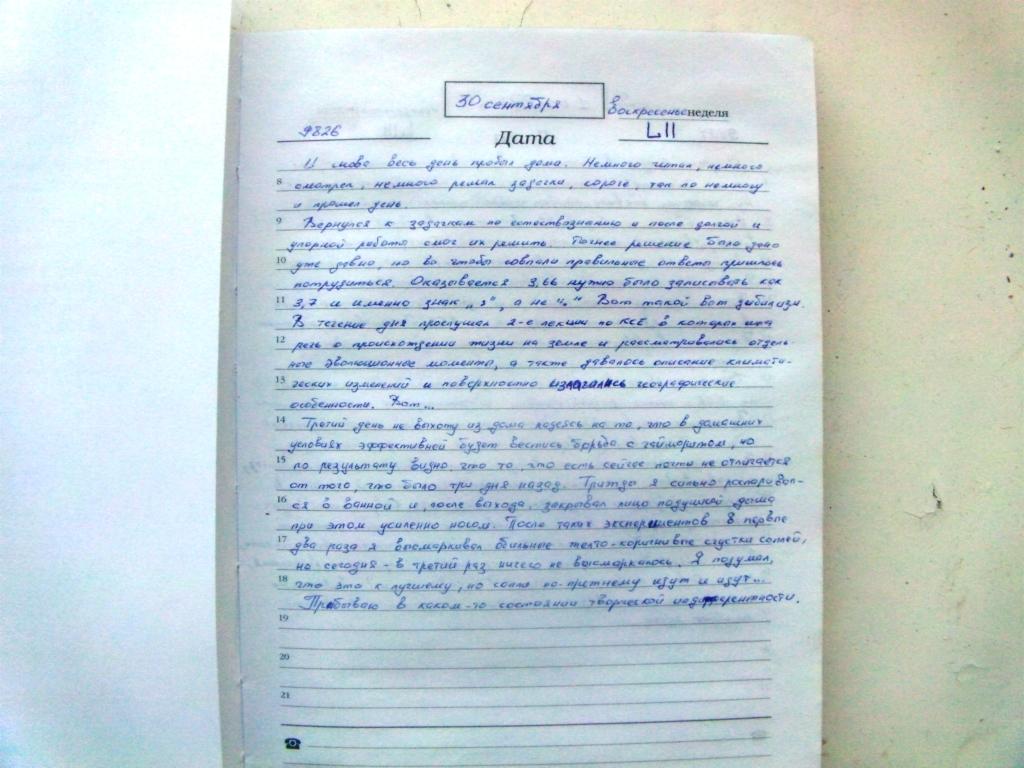 30 сентября
воскресенье неделя
9826
Дата
LII
И снова весь день пробыл дома. Немного читал, немного
8 смотрел, немного решал задачки, короче, так по немногу
и прошел день.
9 Вернулся к задачкам по естествознанию и после долгой и
упорной работы смог их решить. Точнее решение было дано
10 уже давно, но вот чтобы совпали правильные ответы пришлось
потрудиться. Оказывается 3,66 нужно было записывать как
11 3,7 и именно знак „,", а не „." Вот такой вот дибилизм.
В течение дня прослушал 2-е лекции по КСЕ в которых шла
12 речь о происхождении жизни на земле и рассматривались отдель-
ные эволюционные моменты, а также давалось описание климати-
13 ческих изменений и поверхностно излагались географические
особенности. Вот...
14 Третий день не выхожу из дома надеясь на то, что в домашних
условиях эффективней будет вестись борьба с гайморитом, но
15 по результату видно, что то, что есть сейчас почти не отличается
от того, что было три дня назад. Трижды я сильно распаривал-
16 ся в ванной и, после выхода, закрывал лицо подушкой дыша
при этом усиленно носом. После таких экспериментов в первые
17 два раза я высмаркивал обильные желто-коричневые сгустки соплей,
но сегодня - в третий раз ничего не высморкалось. Я подумал,
18 что это к лучшему, но сопли по-прежнему идут и идут...
Пребываю в каком-то состоянии творческой индифферентности.
19
20
21